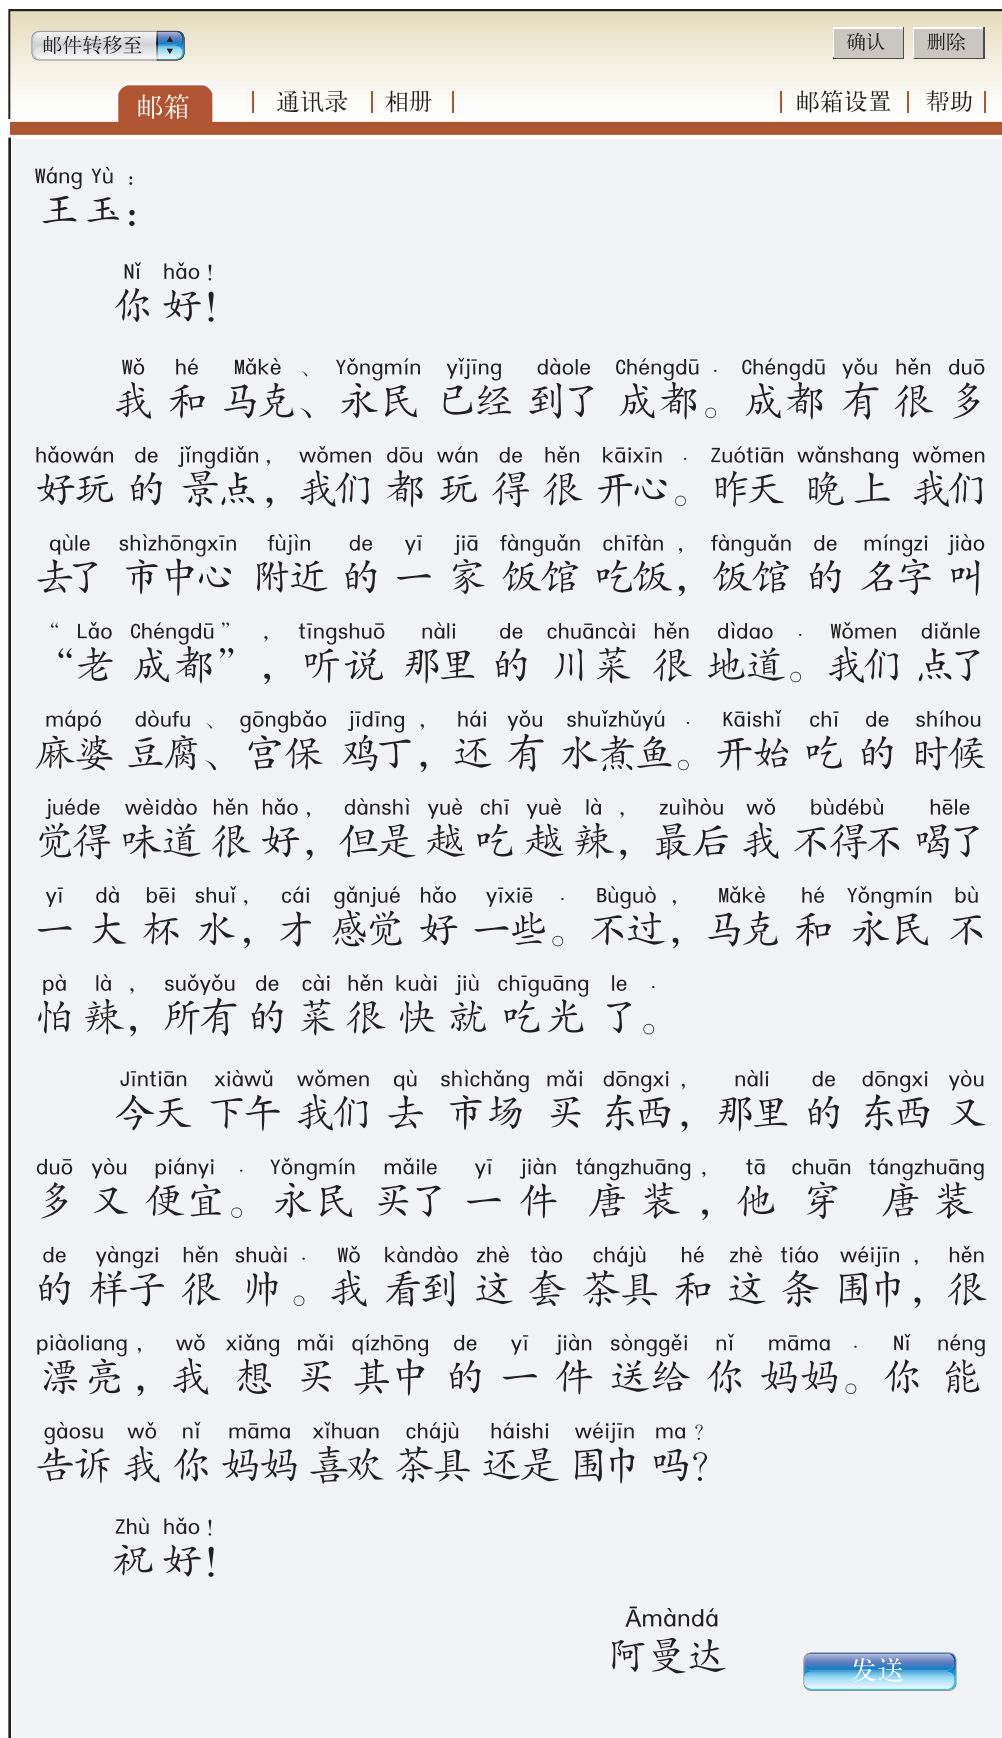 邮件转移至 确认 删除
邮箱 通讯录 相册 邮箱设置 帮助
Wáng Yù :
王玉:
Nǐ hǎo !
你好!
Wǒ hé Mǎkè 、 Yǒngmín yǐjīng dàole Chéngdū . Chéngdū yǒu hěn duō
我和马克、永民已经到了成都。成都有很多
hǎowán de jǐngdiǎn , wǒmen dōu wán de hěn kāixīn . Zuótiān wǎnshang wǒmen
好玩的景点,我们都玩得很开心。昨天晚上我们
qùle shìzhōngxīn fùjìn de yī jiā fànguǎn chīfàn , fànguǎn de míngzi jiào
去了市中心附近的一家饭馆吃饭,饭馆的名字叫
“ Lǎo Chéngdū ” , tīngshuō nàli de chuāncài hěn dìdao . Wǒmen diǎnle
“老成都”,听说那里的川菜很地道。我们点了
mápó dòufu 、 gōngbǎo jīdīng , hái yǒu shuǐzhǔyú . Kāishǐ chī de shíhou
麻婆豆腐、宫保鸡丁,还有水煮鱼。开始吃的时候
juéde wèidào hěn hǎo , dànshì yuè chī yuè là , zuìhòu wǒ bùdébù hēle
觉得味道很好,但是越吃越辣,最后我不得不喝了
yī dà bēi shuǐ , cái gǎnjué hǎo yīxiē . Bùguò , Mǎkè hé Yǒngmín bù
一大杯水,才感觉好一些。不过,马克和永民不
pà là , suǒyǒu de cài hěn kuài jiù chīguāng le .
怕辣,所有的菜很快就吃光了。
Jīntiān xiàwǔ wǒmen qù shìchǎng mǎi dōngxi , nàli de dōngxi yòu
今天下午我们去市场买东西,那里的东西又
duō yòu piányi . Yǒngmín mǎile yī jiàn tángzhuāng , tā chuān tángzhuāng
多又便宜。永民买了一件唐装,他穿唐装
de yàngzi hěn shuài . Wǒ kàndào zhè tào chájù hé zhè tiáo wéijīn , hěn
的样子很帅。我看到这套茶具和这条围巾,很
piàoliang , wǒ xiǎng mǎi qízhōng de yī jiàn sònggěi nǐ māma . Nǐ néng
漂亮,我想买其中的一件送给你妈妈。你能
gàosu wǒ nǐ māma xǐhuan chájù háishi wéijīn ma ?
告诉我你妈妈喜欢茶具还是围巾吗?
Zhù hǎo !
祝好!
Āmàndá
阿曼达
发送